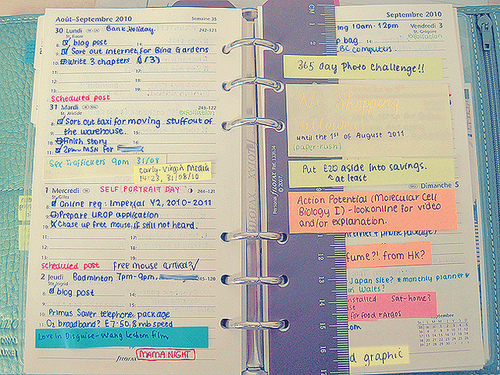 Août-Septembre 2010
Semaine 35
30 Lundi
Bank Holiday
242-123
blog post
Sort out Internet for Bina Gardens
Write 3 chapters (1/3)
scheduled post
31 Mardi
243-122
Sort out taxi for moving stuff out of
the warehouse.
Finish story
2pm MSN for
See Traffickers 9pm 31/08
Early-Virgin Media
14:23, 31/08/10
1 Mercredi
SELF PORTRAIT DAY
244-121
Online reg: Imperial Y2, 2010-2011
Prepare UROP application
Chase up free mouse, if still not heard.
scheduled post
free mouse arrival?/
2 Jeudi
Badminton 7pm-9pm,
245-120
blog post
Primus Saver telephone package
O2 broadband? £7.50, 8mb speed
Love in Disguise-Wang Leehom film
MAMA NIGHT
Septembre 2010
ng 10am-12pm
Vendredi 3
p bag
BC computers
365 day Photo Challenge!!
until the 1st of August 2011
Put £20 aside into savings.
at least
Dimanche 5
Action Potential (Molecular Cell
Biology I) - look online for video
and/or explanation.
internet + phone package?
sume?! from HK?
Japan site?
monthly planner
in Wales?
nstalled
Sat-home?
for food + Argos
d graphic